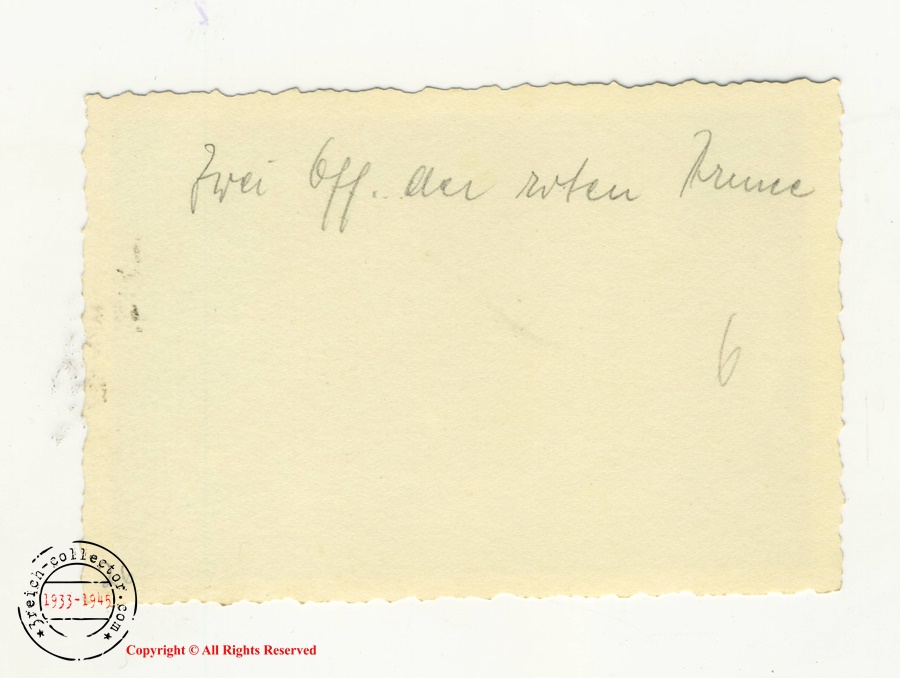 Zwei Off. der roten Armee
6
3reich-collector.com
1933-1945
Copyright © All Rights Reserved